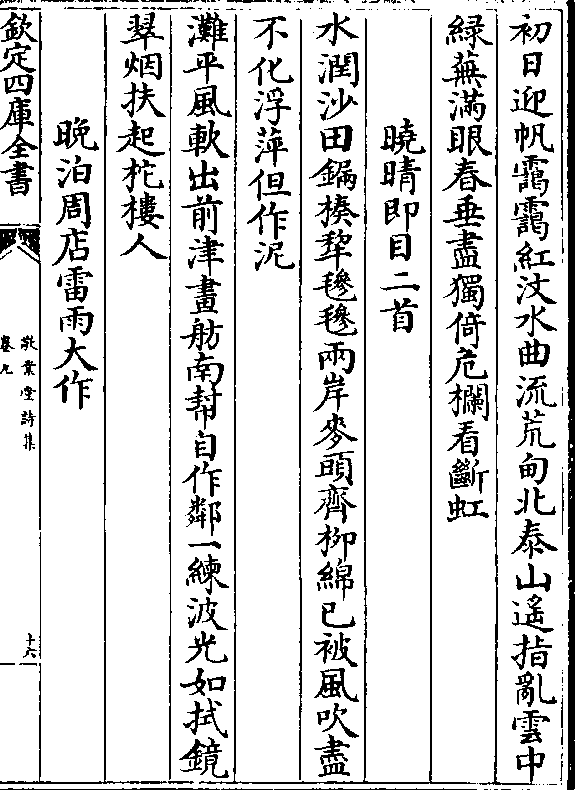 初日迎帆靄靄紅汶水曲流荒甸北泰山遙指亂雲中
緑蕪滿眼春垂盡獨倚危欄看斷虹
曉晴即目二首
水潤沙田揍犂毿毿兩岸麥頭齊栁綿已被風吹盡
不化浮萍但作泥
灘平風軟出前津畫舫南幇自作鄰一練波光如拭鏡
翠烟扶起柁樓人
晚泊周店雷雨大作
欽定四庫全書
敬業堂詩集
卷九
十六